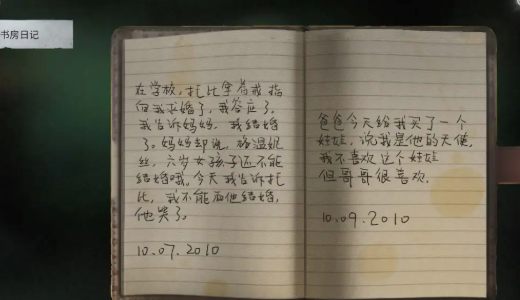 书房日记
在学校，托比拿着戒指
向我求婚了，我答应了。
我告诉妈妈，我结婚
了。妈妈却说，
丝，六岁女孩子还不能
结婚哦。今天我告诉托
比，我不能和他结婚，
他哭了。
10.07.2010
爸爸今天给我买了一个
娃娃，说我是他的天使，
我不喜欢这个娃娃
但哥哥很喜欢.
10.09.2010